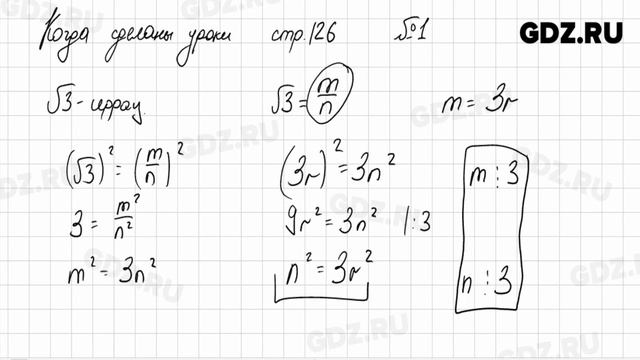 Когда сделаны уроки стр.126 №1
GDZ.RU
√3-иррац. √3 = m/n m = 3r
(√3)² = (m/n)² (3r)² = 3n² m ⋮ 3
3 = m²/n² 9r² = 3n² |:3
m² = 3n² n² = 3r² n ⋮ 3